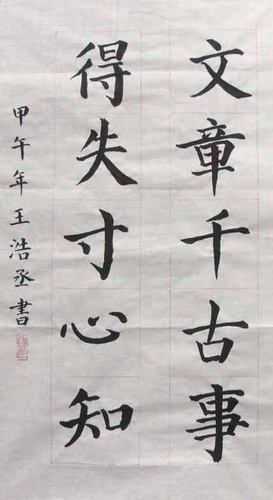 文章千古事
得失寸心知
甲午年王浩丞書